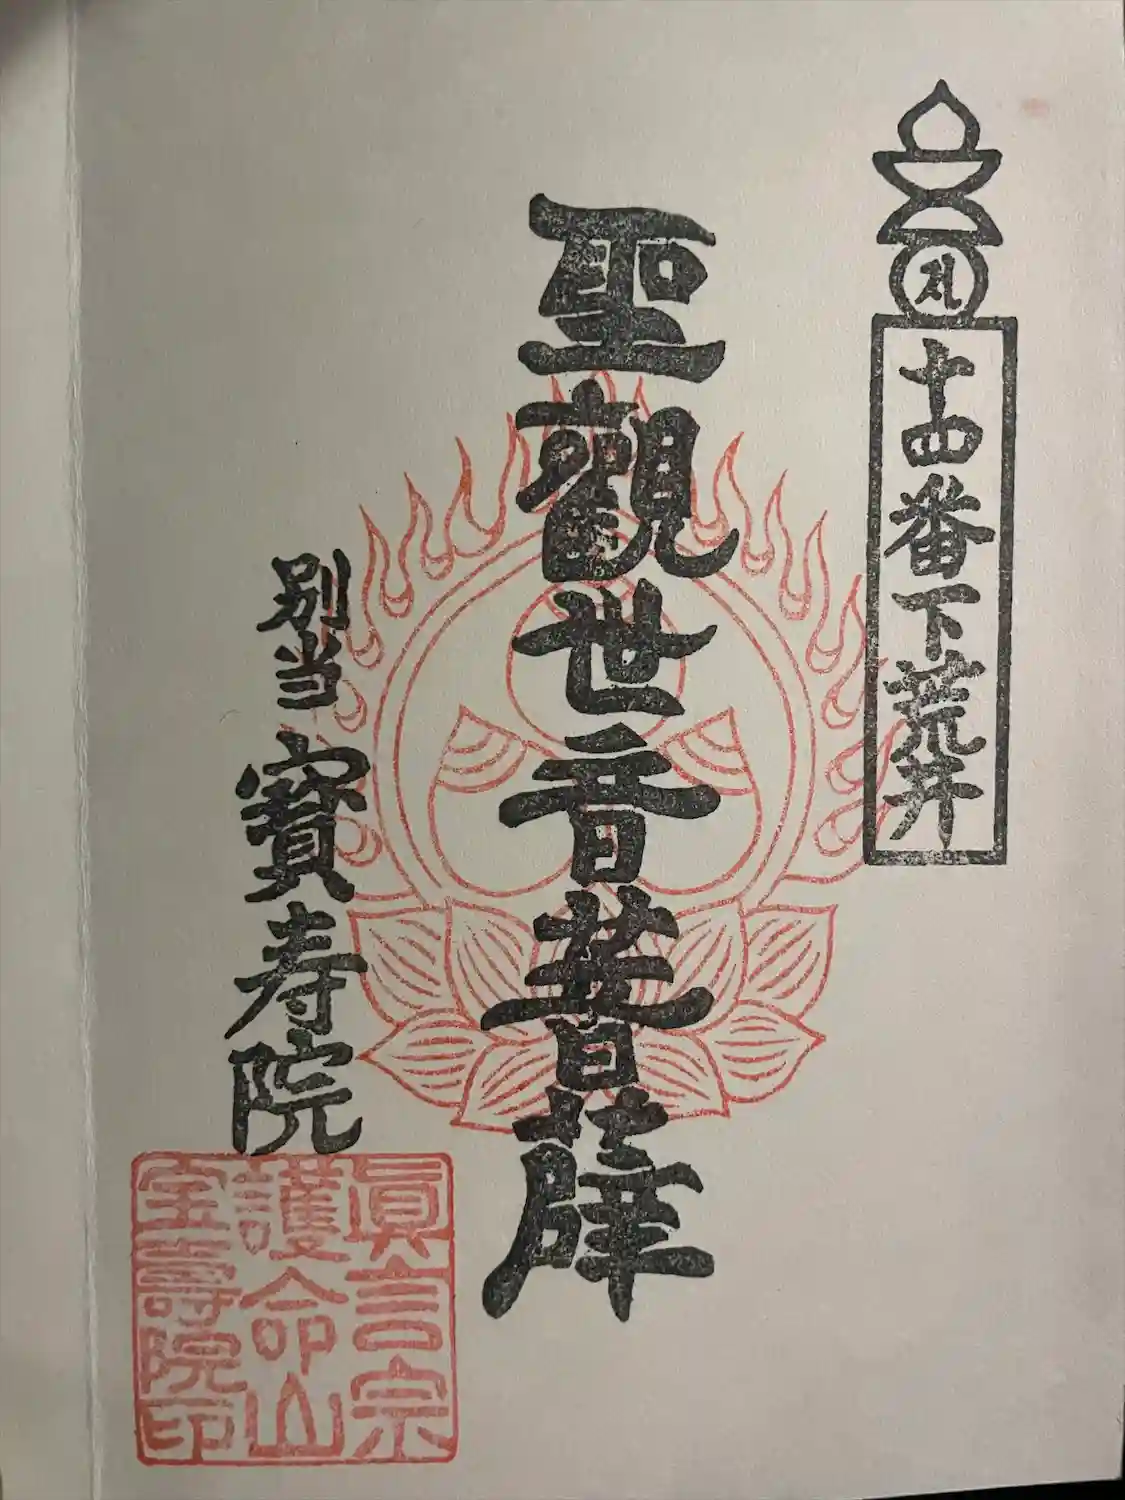 十四番下荒井
聖觀世音菩薩
別当 寳寿院
眞言宗
護命山
宝壽院印